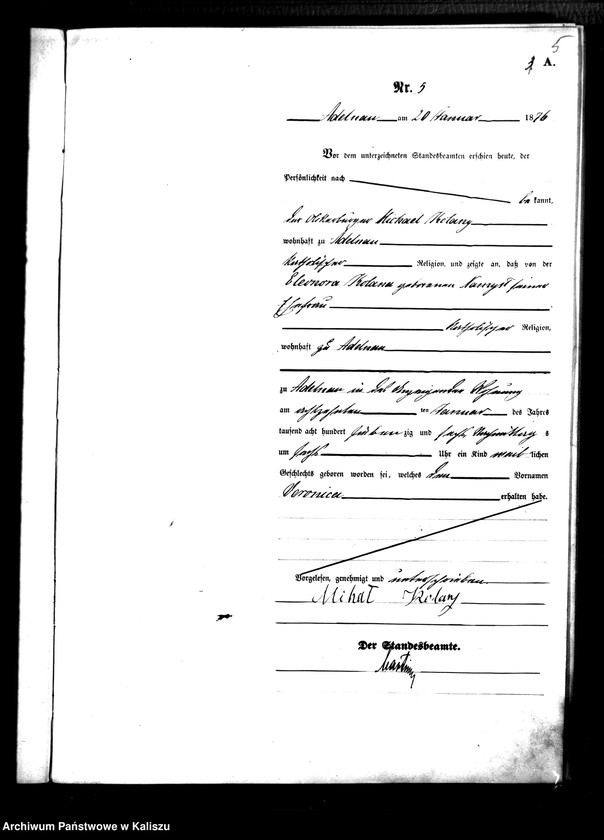 5
A.
Nr. 5
Adelnau am 20 Januar 1876
Vor dem unterzeichneten Standesbeamten erschien heute, der
Persönlichkeit nach
be kannt,
der Ackerbürger Michael Kolany
wohnhaft zu Adelnau
katholischer Religion, und zeigte an, daß von der
Eleonora Kolana geborenen seiner
Ehefrau
katholischer Religion,
wohnhaft zu Adelnau
zu Adelnau in des Anzeigenden Wohnung
am achtzehnten ten Januar des Jahres
tausend acht hundert siebenzig und sechs Nachmittags
um sechs Uhr ein Kind weiblichen
Geschlechts geboren worden sei, welches den Vornamen
Veronica erhalten habe.
Vorgelesen, genehmigt und unterschrieben.
Mihał Kolany
Der Standesbeamte.
Archiwum Państwowe w Kaliszu